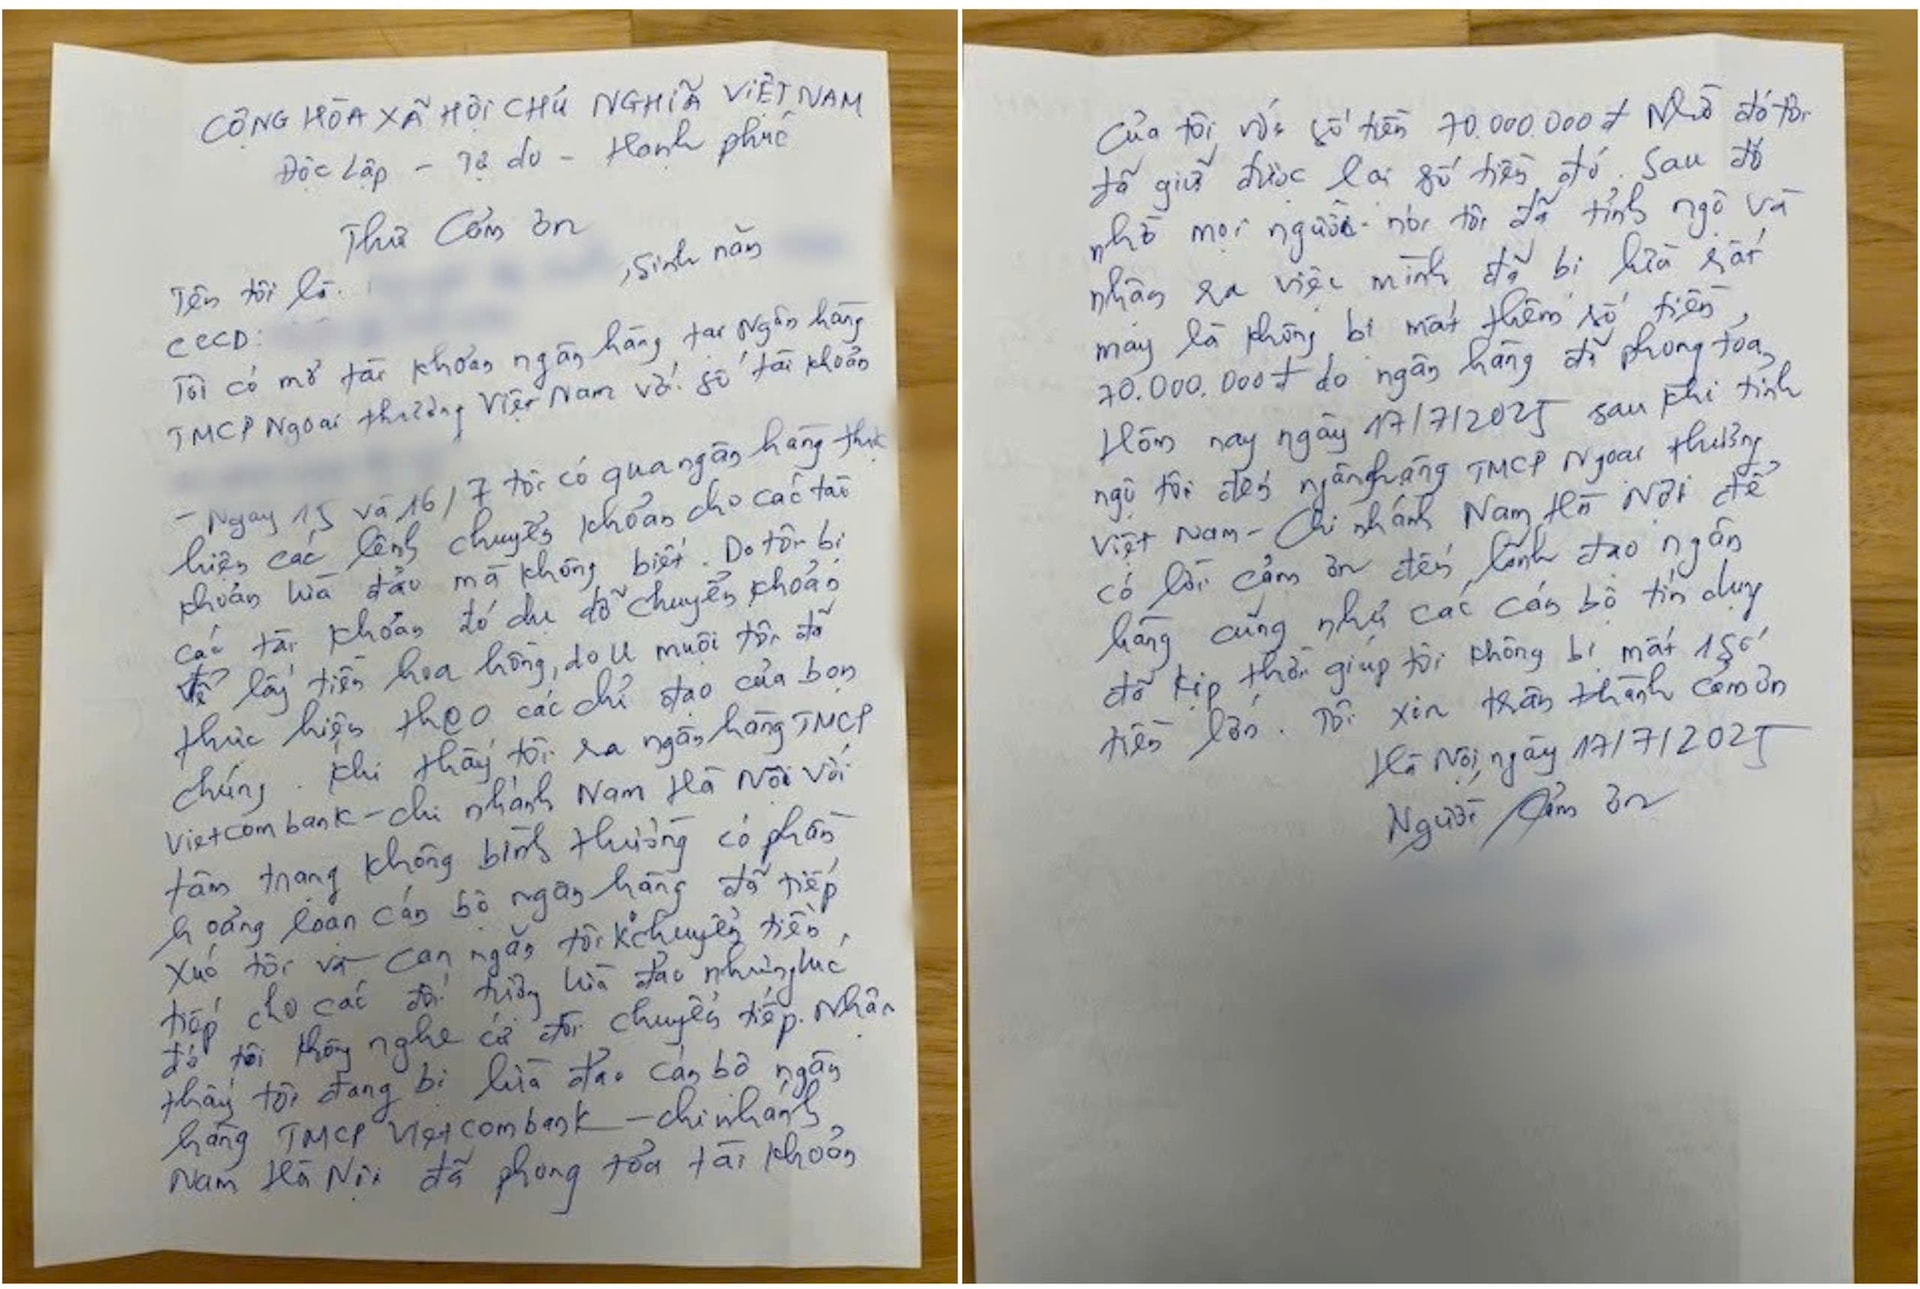 CỘNG HÒA XÃ HỘI CHỦ NGHĨA VIỆT NAM
Độc Lập - Tự do - Hạnh phúc
Thư Cảm ơn
Tên tôi là. , Sinh năm
CCCD:
Tôi có mở tài khoản ngân hàng tại Ngân hàng
TMCP Ngoại thương Việt Nam với số tài khoản
- Ngày 15 và 16/7 tôi có qua ngân hàng thực
hiện các lệnh chuyển khoản cho các tài
khoản lừa đảo mà không biết. Do tôi bị
các tài khoản đó dụ dỗ chuyển khoản
để lấy tiền hoa hồng, do u muội tôi đã
thực hiện theo các chỉ đạo của bọn
chúng. Khi thấy tôi ra ngân hàng TMCP
Vietcombank - chi nhánh Nam Hà Nội với
tâm trạng không bình thường có phần
hoảng loạn cán bộ ngân hàng đã tiếp
xúc tôi và can ngăn tôi k chuyển tiền
tiếp cho các đối tượng lừa đảo nhưng lúc
đó tôi không nghe cứ đòi chuyển tiếp. Nhận
thấy tôi đang bị lừa đảo cán bộ ngân
hàng TMCP Vietcombank - chi nhánh
Nam Hà Nội đã phong tỏa tài khoản
Của tôi với số tiền 70.000.000đ Nhờ đó tôi
đã giữ được lại số tiền đó. Sau đó
nhờ mọi người nói tôi đã tỉnh ngộ và
nhận ra việc mình đã bị lừa rất
may là không bị mất thêm số tiền
70.000.000đ do ngân hàng đã phong tỏa,
Hôm nay ngày 17/7/2025 sau khi tỉnh
ngộ tôi đến ngân hàng TMCP Ngoại thương
Việt Nam - Chi nhánh Nam Hà Nội để
có lời cảm ơn đến lãnh đạo ngân
hàng cũng như các cán bộ tín dụng
đã kịp thời giúp tôi không bị mất 1 số
tiền lớn. Tôi xin chân thành cảm ơn
Hà Nội, ngày 17/7/2025
Người Cảm ơn